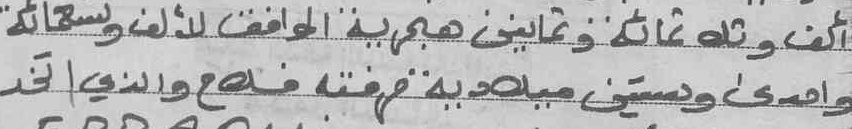 ألف وثلاثمائة وثمانين هجرية الموافق للألف وتسعمائة
واحدى وستين ميلادية مهنته فلاح والذي اتخذ